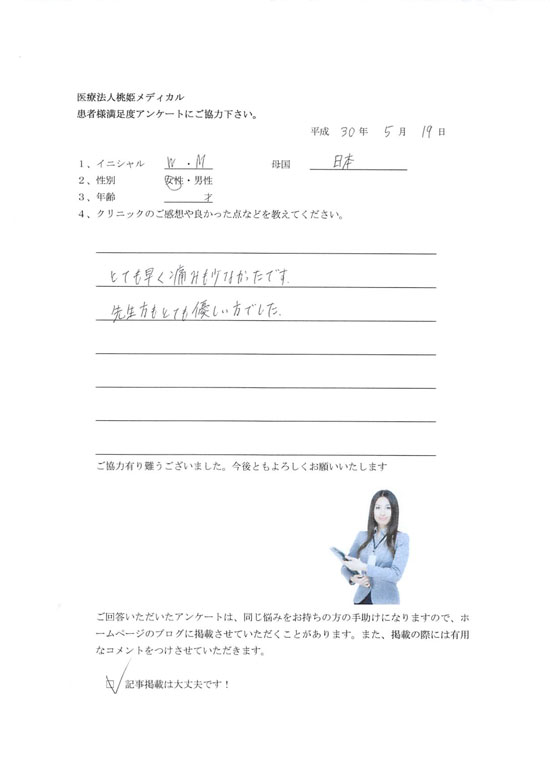 医療法人桃姫メディカル
患者様満足度アンケートにご協力下さい。
平成 30 年 5 月 19 日
1、イニシャル W ・ M 母国 日本
2、性別 女性・男性
3、年齢 才
4、クリニックのご感想や良かった点などを教えてください。
とても早く痛みも少なかたです.
先生方もとても優しい方でした.
ご協力有り難うございました。今後ともよろしくお願いいたします
ご回答いただいたアンケートは、同じ悩みをお持ちの方の手助けになりますので、ホ
ームページのブログに掲載させていただくことがあります。また、掲載の際には有用
なコメントをつけさせていただきます。
記事掲載は大丈夫です！